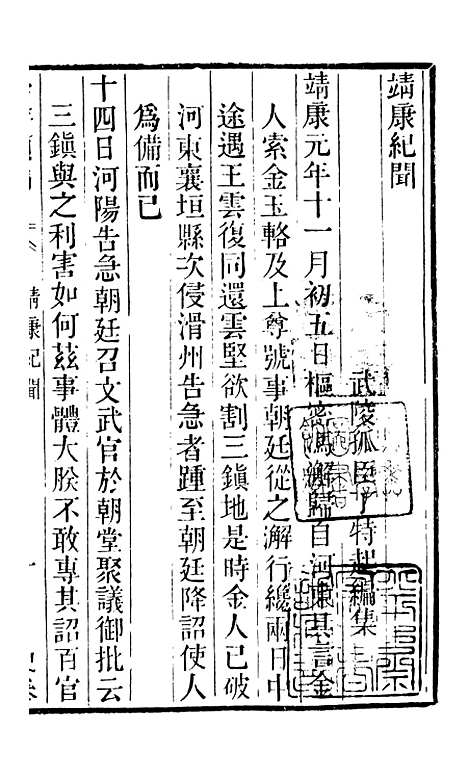 靖康紀聞
武陵孤臣丁特起編集
靖康元年十一月初五日樞密馮澥歸自河東其言金
人索金玉輅及上尊號事朝廷從之澥行纔兩日中
途遇王雲復同還雲堅欲割三鎮地是時金人已破
河東襄垣縣次侵滑州告急者踵至朝廷降詔使人
爲備而已
十四日河陽告急朝廷召文武官於朝堂聚議御批云
三鎮與之利害如何茲事體大朕不敢專其詔百官
靖康紀聞
一